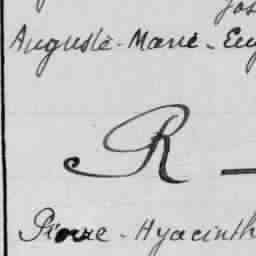 Jos
Auguste-Marie-Eug
R —
Pierre-Hyacinth